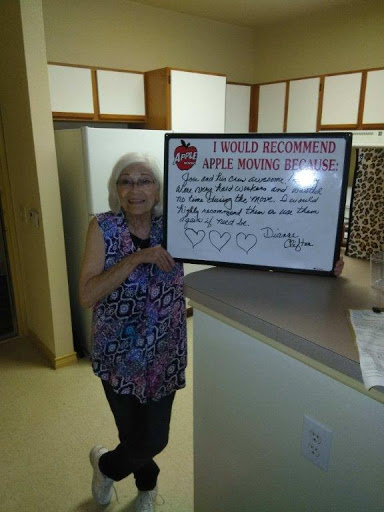 APPLE
MOVING
I WOULD RECOMMEND
APPLE MOVING BECAUSE:
and his crew awesome
very hard workers and
no time during the move. I would
highly recommend them or use them
again if need be.
Dianne